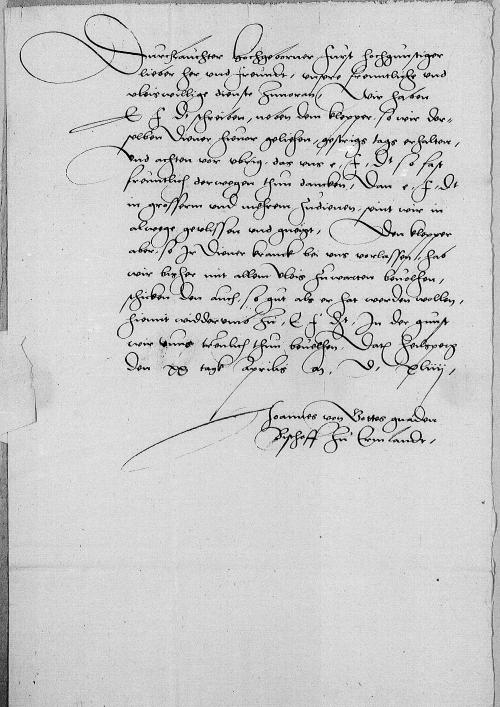 Durchlauchter hochgeborner furst hochgunstiger
lieber her und freundt, unsere freuntliche und
vleiswillige dienste zuvoran, Wir haben
E F Dt schreiben, neben dem klepper, so wir der-
selben diener hievor geliehen, gestrigs tags erhalten,
Und achten vor ubrig, das uns e, F, Dt so fast
freuntlich derwegen thun dancken, Dan e, F, Dt
in grosserm und mehrem zudienen, seint wir in
alwege geflissen und gneigt, Den klepper
aber, so Ir diener kranck bei uns verlassen, hab
wir bisher mit allem vleis zuwarten bevolhen,
schicken den auch, so gut als er hat werden wollen,
hiemit widderumb zu, E F Dt, In der gunst
wir unns treulich thun bevelhen, Datx Heilsperg
den xx tagk Aprilis M, D, xliiij,
Joannes von Gottes gnaden
Bischoff zu Ermlandt,